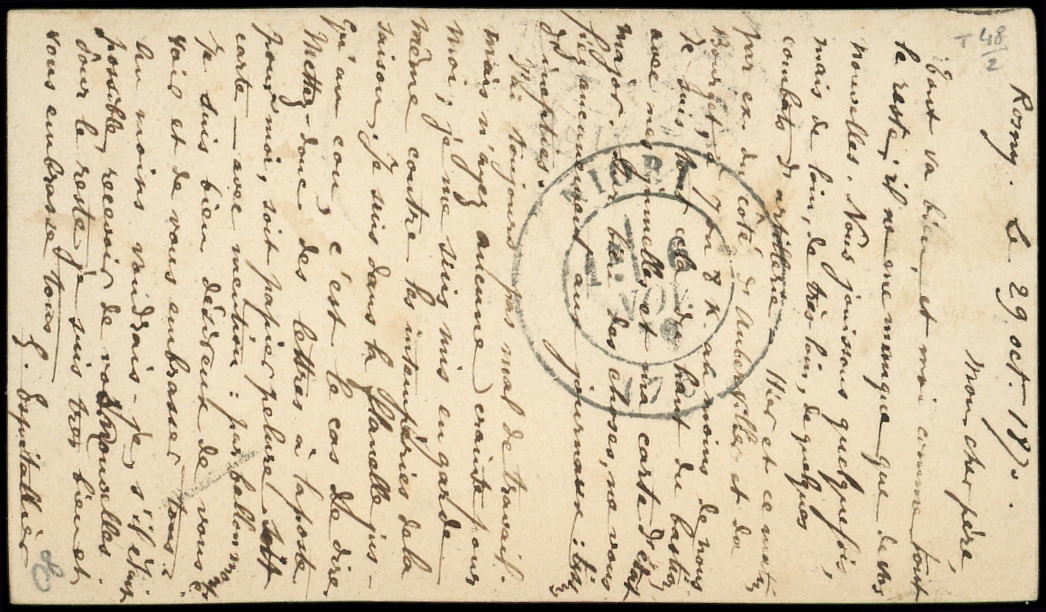 Rosny. Le 29 oct. 1870.
Mon cher père,
Tout va bien, et moi comme tout
le reste, il ne me manque que de vos
nouvelles. Nous jouissons quelquefois,
mais de loin, de très-loin, de quelques
combats d'artillerie. Hier et ce matin
par ex. du côté d'Aubervilliers et du
Bourget, à 7 ou 8 k. au moins de nous
Je suis tout cela du haut du bastion
avec mes jumelles et ma carte d'état
major. On dira des choses, ne vous
fiez aucunement aux journaux:
d'inepties.
J'ai toujours pas mal de travail.
mais n'ayez aucune crainte pour
moi; je me suis mis en garde
même contre les intempéries de la
saison. Je suis dans la flanelle jus-
qu'au cou, c'est le cas de dire
Mettez-donc des lettres à la poste
pour moi, soit papier pelure soit
carte - avec mention: par ballon
Je suis bien désireux de vous
voir et de vous embrasser tous.
Au moins voudrais-je, s'il était
possible, recevoir de vos nouvelles
Pour le reste je suis très bien et
vous embrasse tous
E. Espitallier
NIORT
NOV.
T 48/2